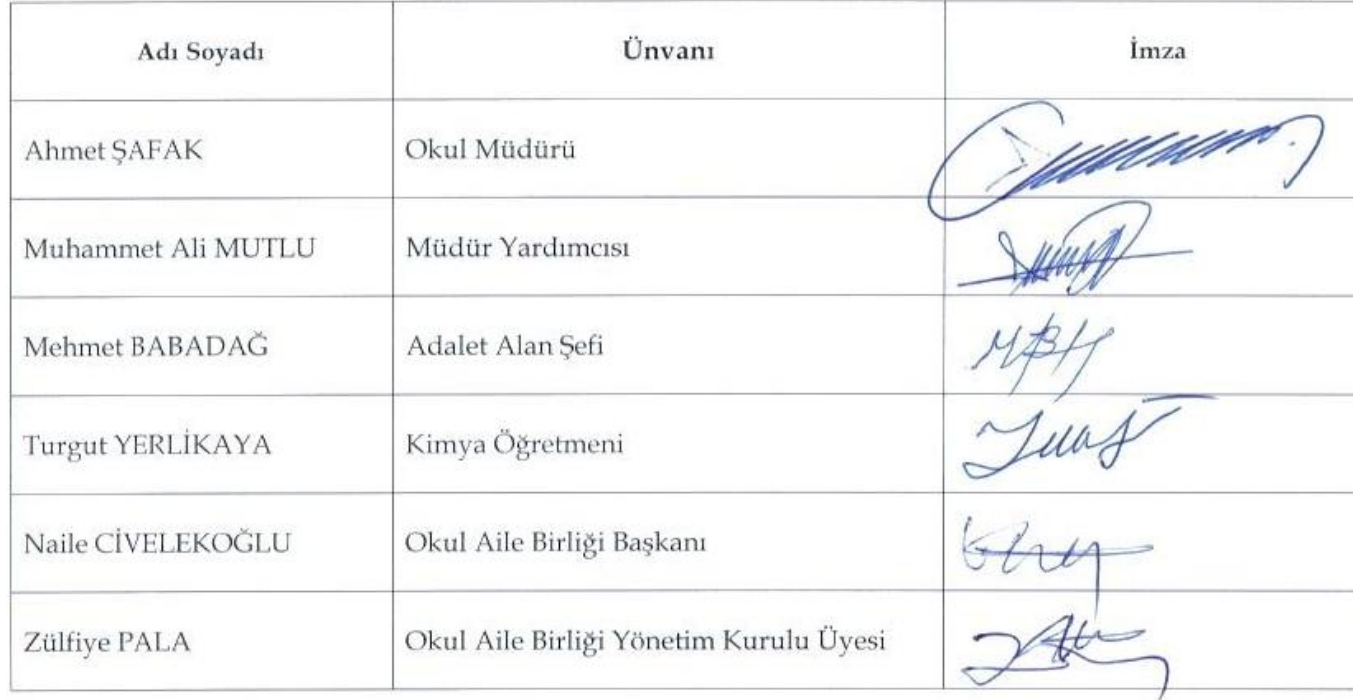 Adı Soyadı Ünvanı İmza
Ahmet ŞAFAK Okul Müdürü
Muhammet Ali MUTLU Müdür Yardımcısı
Mehmet BABADAĞ Adalet Alan Şefi
Turgut YERLİKAYA Kimya Öğretmeni
Naile CİVELEKOĞLU Okul Aile Birliği Başkanı
Zülfiye PALA Okul Aile Birliği Yönetim Kurulu Üyesi